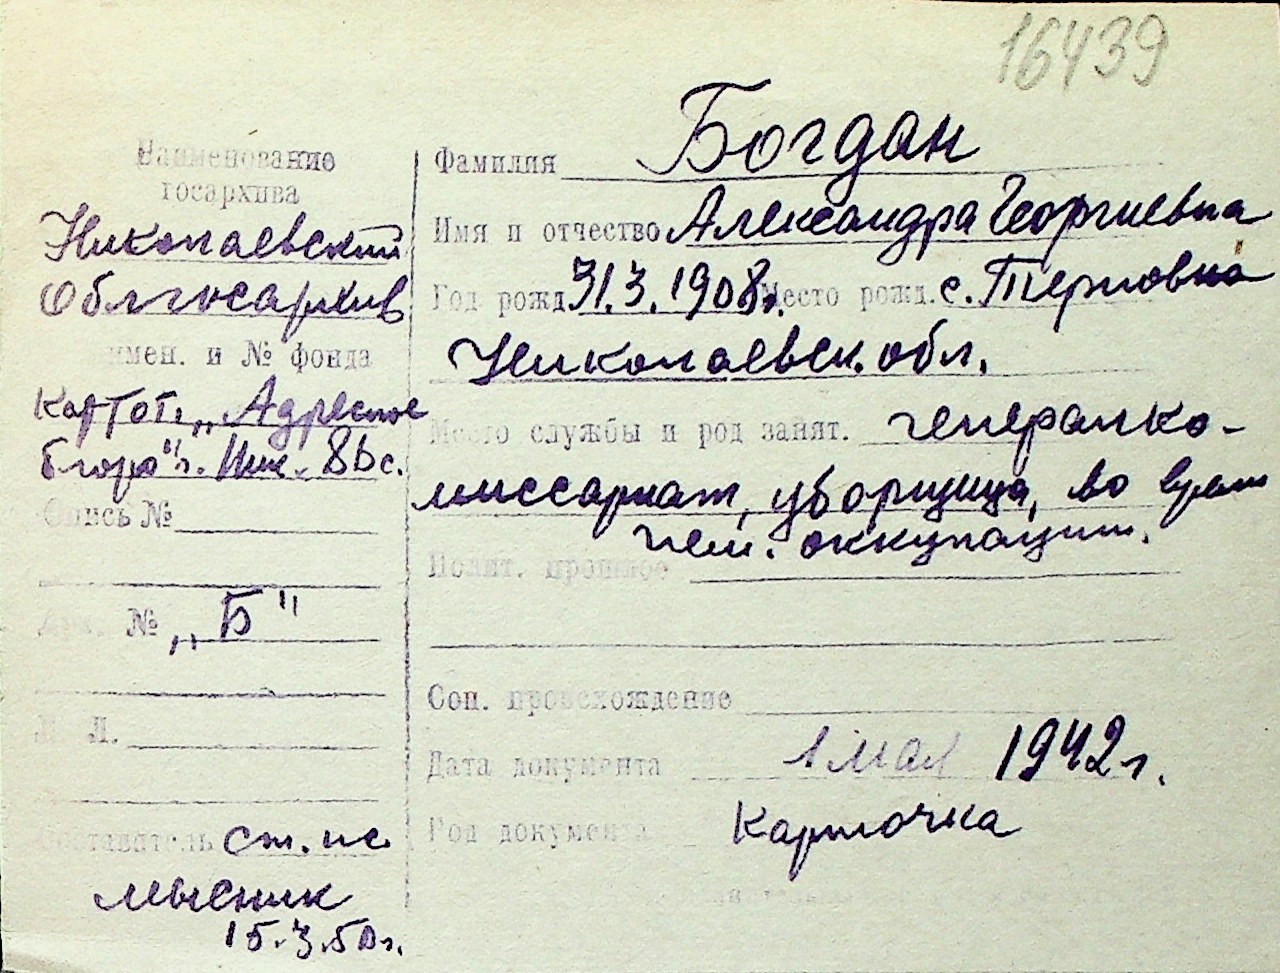 16439
Наименование
госархива
Николаевский
Облгосархив
имен. и № фонда
Картот. „Адресное
бюро" г. Ник.
Опись №
№ „Б"
Л.
Составитель ст. н.с.
Мысник
15.3.50 г.
Фамилия Богдан
Имя и отчество Александра Георгиевна
Год рожд. 31.3.1908 г. Место рожд. с. Терновка
Николаевск. обл.
Место службы и род занят. генералко-
миссариат, уборщица, во время
нем. оккупации.
Полит. прошлое
Соц. происхождение
Дата документа 1 мая 1942 г.
Род документа Карточка